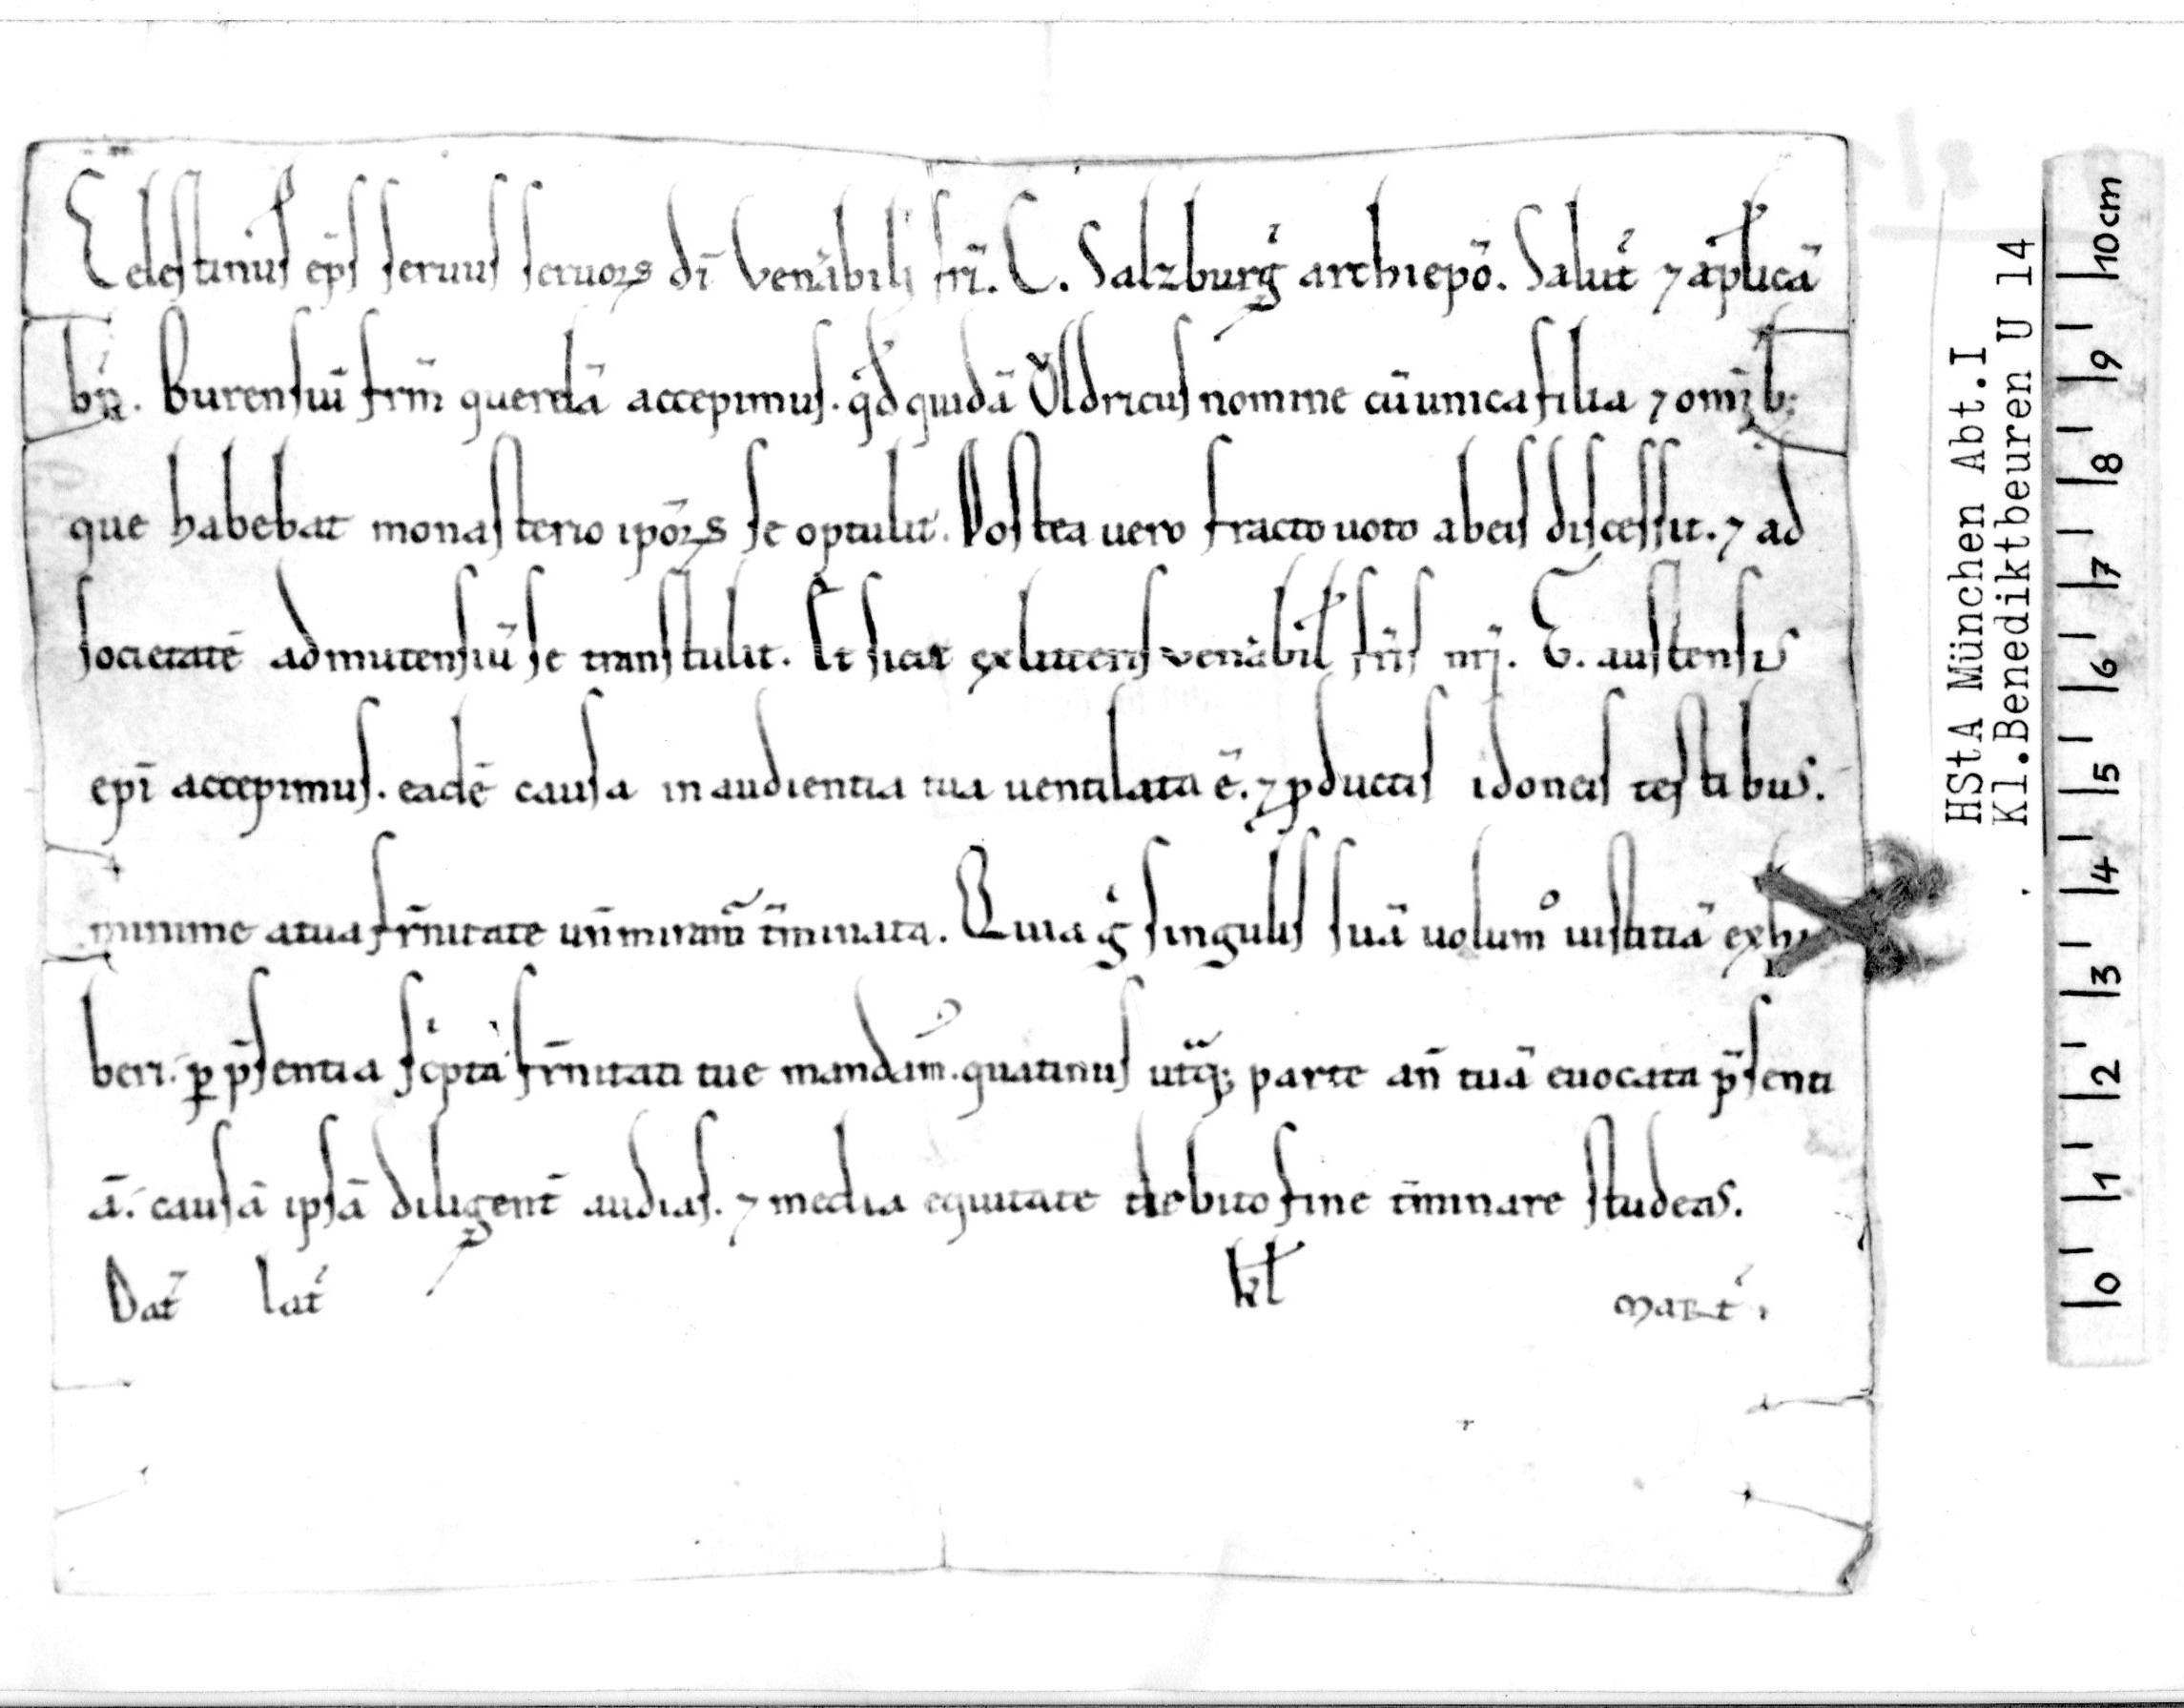 Celestinus ep̄s seruus seruoꝝ dī Venabili frī. C. Salzburḡ archiepō. Salut̄ ⁊ ap̄licā
bn̄. Burensiū frm̄ querelā accepimus. qd̄ quidā Vͦldricus nomine cū unica filia ⁊ omīb;
que habebat monasterio ipōꝝ se optulit. Postea uero fracto uoto ab eis discessit. ⁊ ad
societatē admutensiū se transtulit. Et sicut ex litteris venabil̄ frīs nrī. E. austensis
epī accepimus. eadē causa in audientia tua uentilata ē. ⁊ ꝓductis idoneis testibus.
minime a tua frn̄itate t̄minata. Quia ḡ singulis suā uolumꝰ iustitiā exhi
beri. ꝑ p̄sentia sc̍pta frn̄itati tue mandam̄. quatinus ut̄q; parte an̄ tuā euocata p̄senti
ā. causā ipsā diligent̄ audias. ⁊ media equitate debito fine t̄minare studeas.
Dat̄ lat̄ kl̄ mart̄.
HStA München Abt.I
Kl.Benediktbeuren U 14
10cm
9
8
7
6
5
4
3
2
1
0